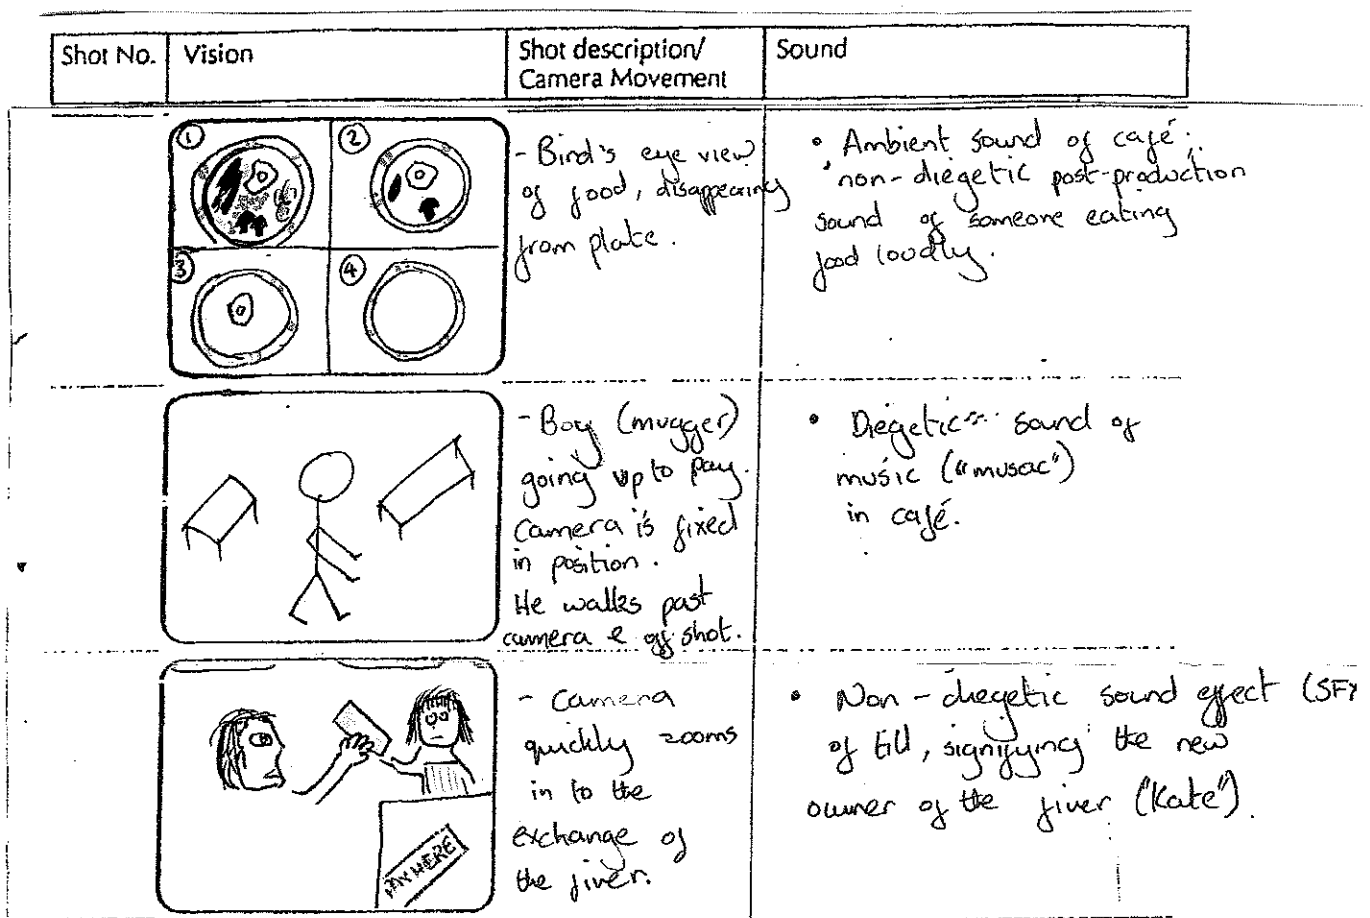 Shot No.
Vision
Shot description/
Camera Movement
Sound
1
2
3
4
- Bird's eye view
of food, disappearing
from plate.
• Ambient sound of café;
non-diegetic post-production
sound of someone eating
food loudly.
- Boy (mugger)
going up to pay.
Camera is fixed
in position.
He walks past
camera & off shot.
• Diegetic sound of
music ("musac")
in café.
PAY HERE
- Camera
quickly zooms
in to the
exchange of
the fiver.
• Non-diegetic sound effect (SFX
of till, signifying the new
owner of the fiver ("Kate").